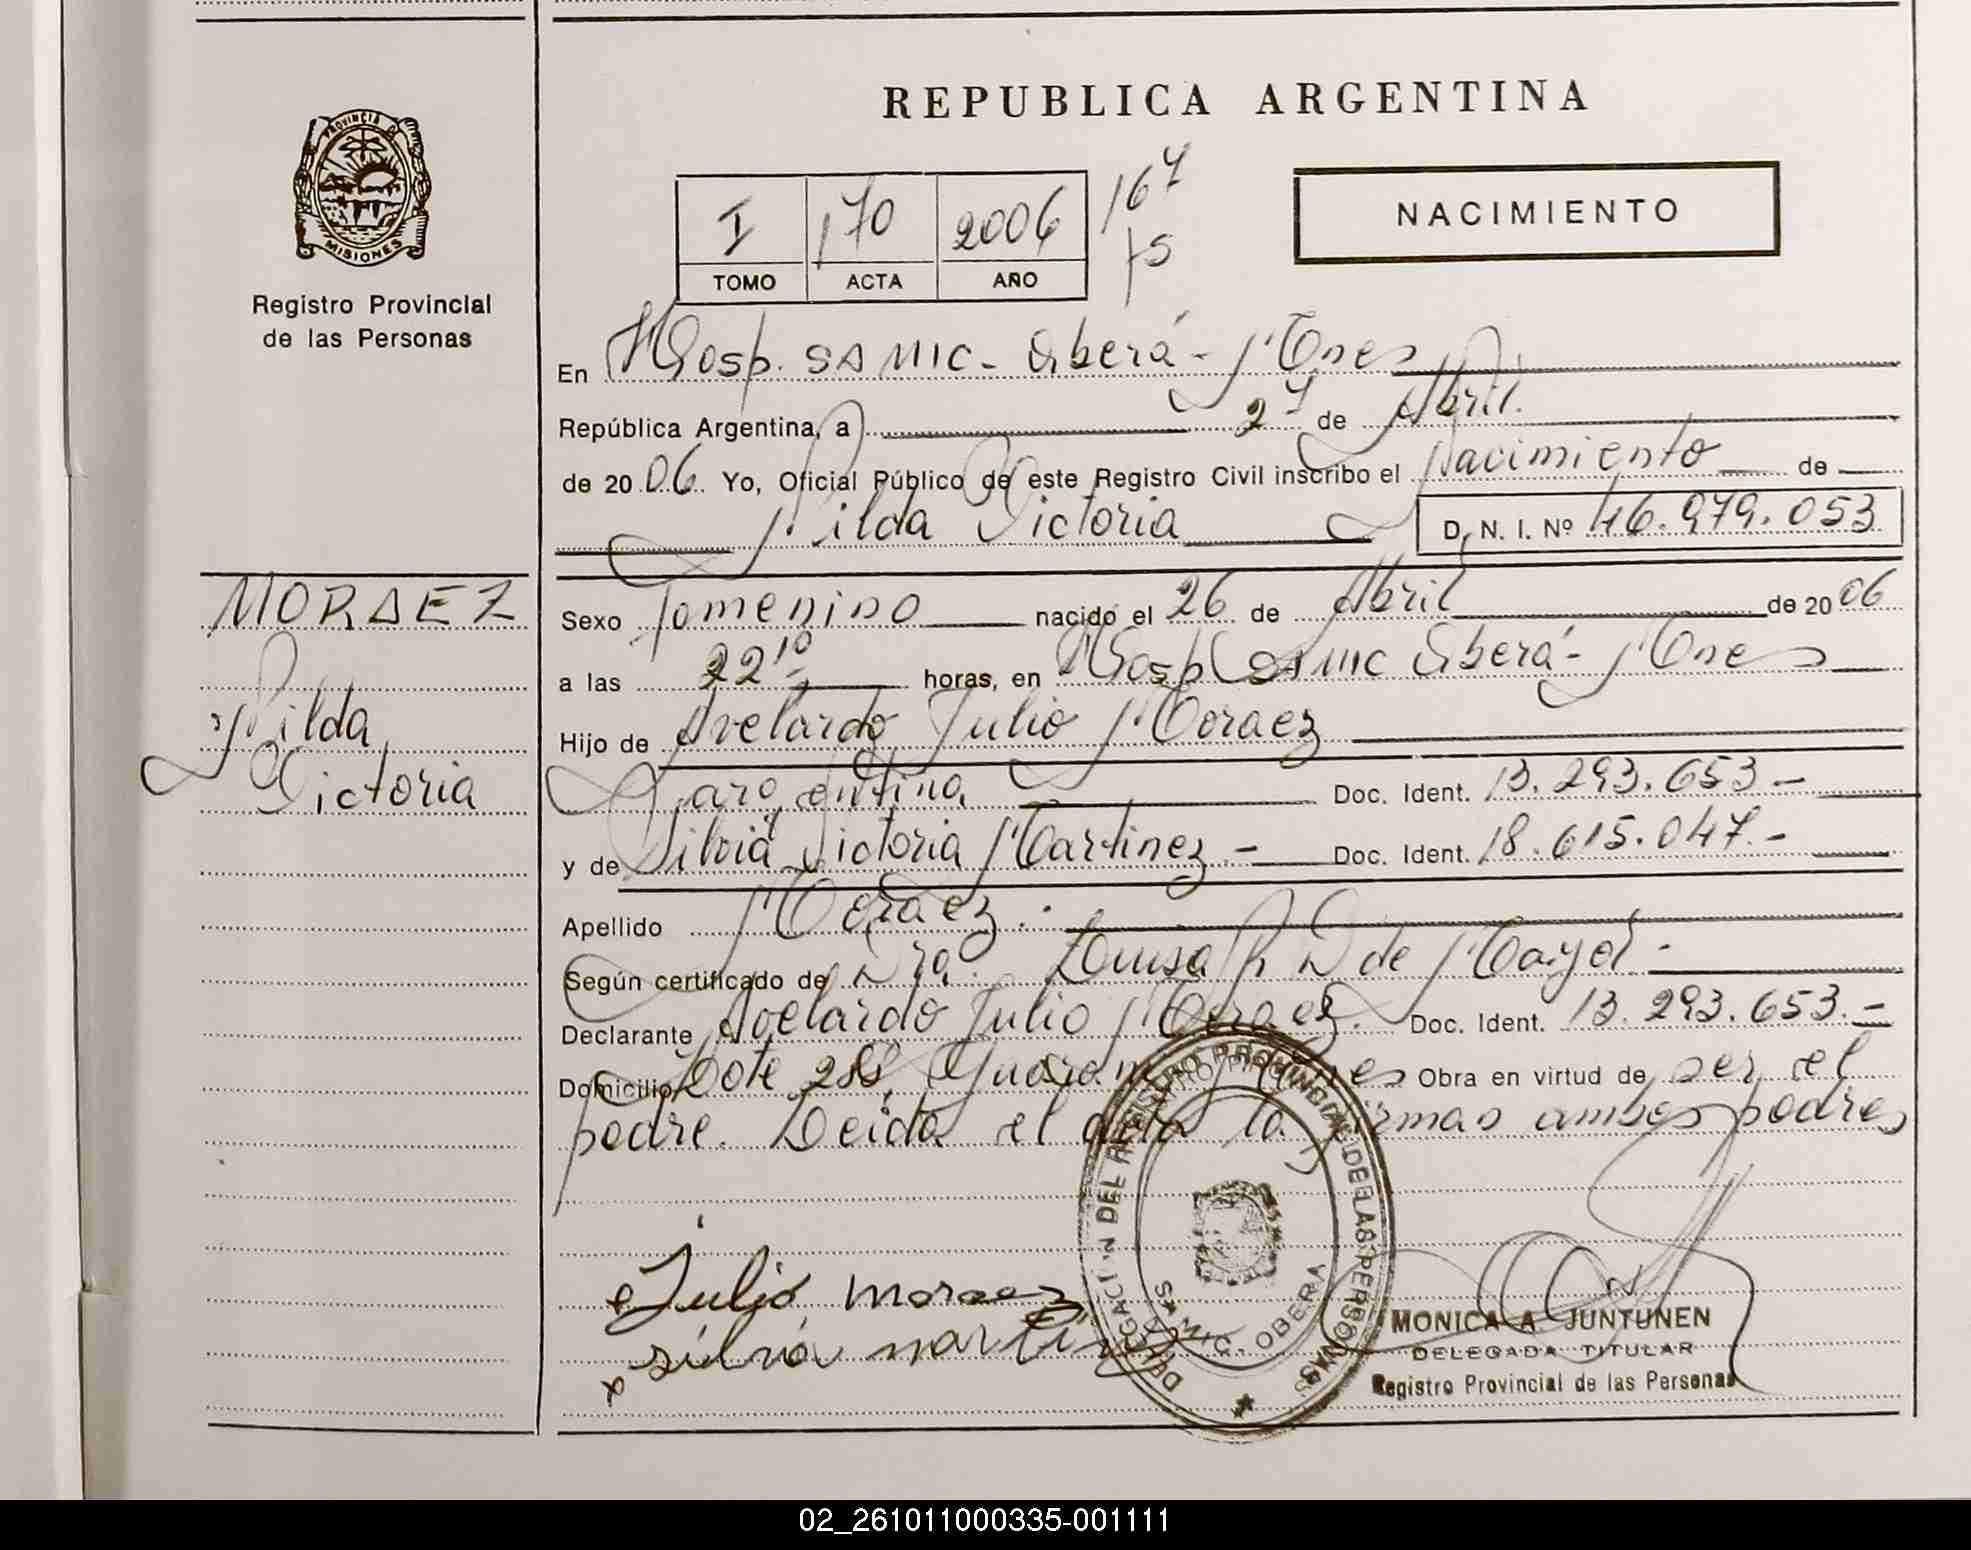 REPUBLICA ARGENTINA
PROVINCIA DE
MISIONES
Registro Provincial
de las Personas
I 170 2006 167
TOMO ACTA AÑO
NACIMIENTO
En Hosp. SAMIC - Oberá - Mnes
República Argentina, a 27 de Abril.
de 20 06 Yo, Oficial Público de este Registro Civil inscribo el Nacimiento de
Nilda Victoria D. N. I. Nº 46.979.053
MORAEZ
Nilda
Victoria
Sexo Femenino nacido el 26 de Abril de 20 06
a las 22 10 horas, en Hosp SAMIC Oberá - Mnes
Hijo de Avelardo Julio Moraez
argentina Doc. Ident. 13.293.653.-
y de Silvia Victoria Martinez.- Doc. Ident. 18.615.047.-
Apellido Moraez.
Según certificado de Dra. Luisa R D de Mayol.-
Declarante Avelardo Julio Moraez. Doc. Ident. 13.293.653.-
Domicilio Lote 288, Guarani, Mnes Obra en virtud de ser el
padre. Leida el acta la firman ambos padres
DELEGACION DEL REGISTRO PROVINCIAL DE LAS PERSONAS
OBERA
Julio moraez
silvia martinez
MONICA A JUNTUNEN
DELEGADA TITULAR
Registro Provincial de las Personas
02_261011000335-001111